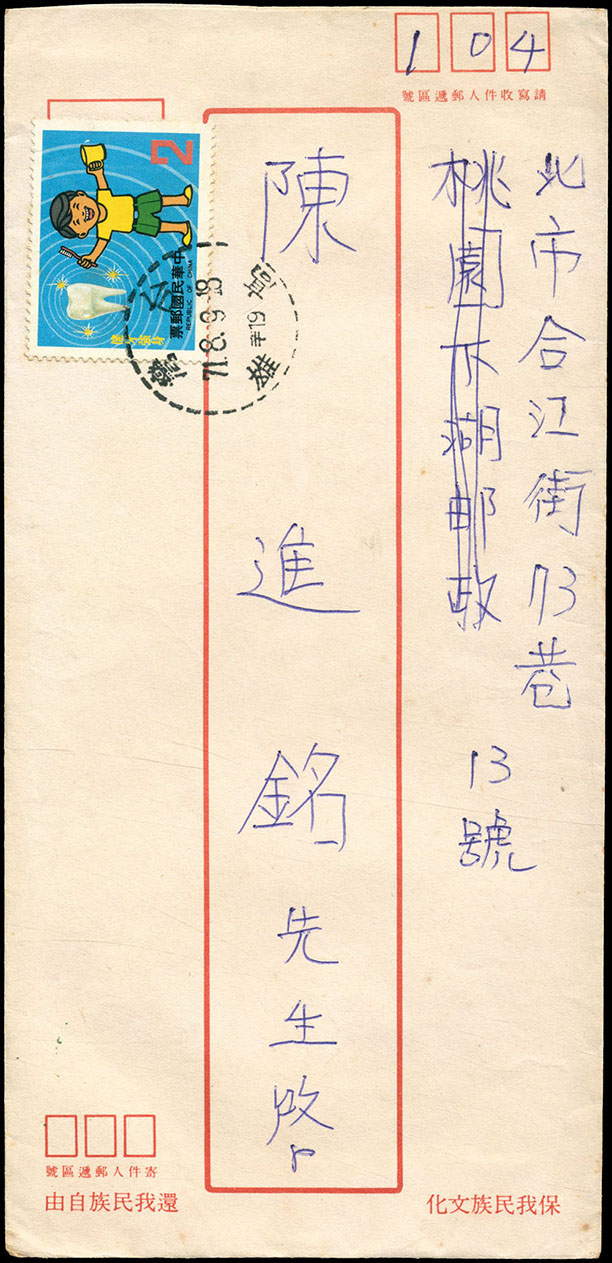 104
請寫收件人郵遞區號
北市合江街73巷
13號
桃園下湖邮政
陳進銘先生啟
2
中華民國郵票
REPUBLIC OF CHINA
健身強身
71.8.9-18
寄件人郵遞區號
保我民族文化
還我民族自由